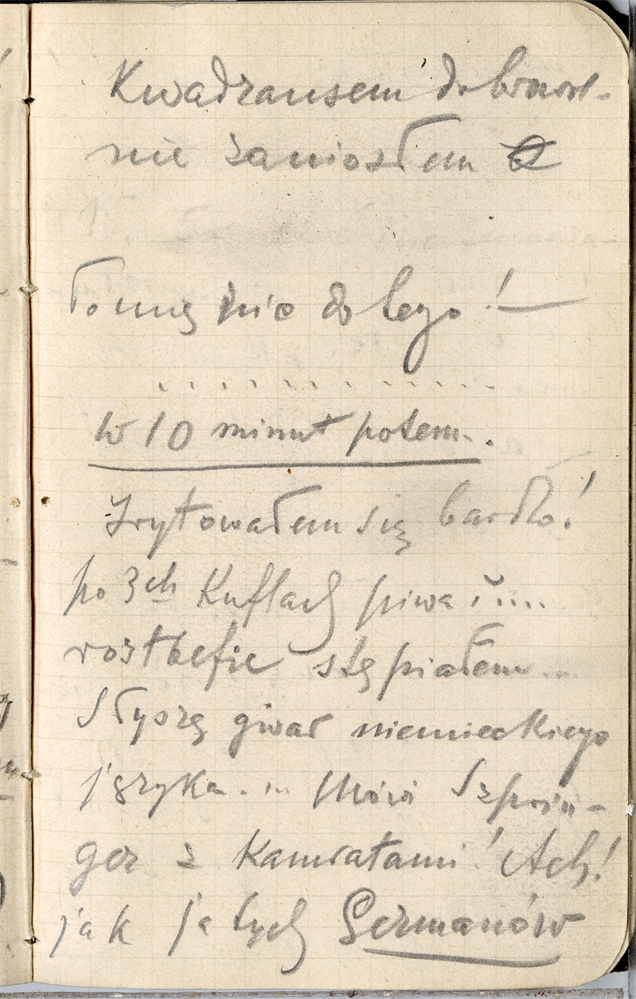 Kwadransem dobrowol-
nie zaniosłem
To mię nie do tego! —
w 10 minut potem.
Zrytowałem się bardzo!
po 3ch Kuflach piwa i ...
rostbefie stępiałem...
Słyszę gwar niemieckiego
języka... Mówi Szprin-
ger z Kamratami! Ach!
jak ja tych Germanów